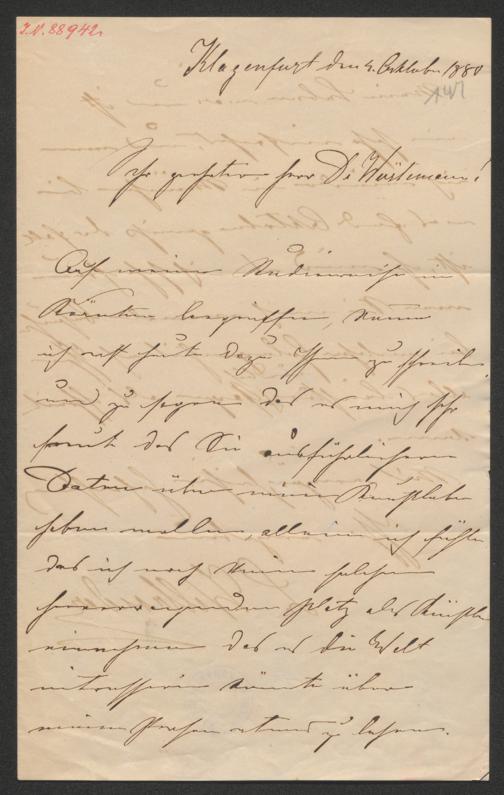 I.N. 88942
Klagenfurt den 4. Oktober 1880
Sehr geehrter Herr Dr Wüstemann!
Auf meiner Studienreise in
Kärnten begriffen, komme
ich erst heute dazu Ihnen zu schreiben
und zu sagen das es mich sehr
freut das Sie ausführlichere
Daten über mein Kunstleben
haben wollen, allein ich fühle
das ich noch keinen solchen
hervorragenden Platz als Künstler
einnehme das es die Welt
intressieren könnte über
meine Person etwas zu lesen.